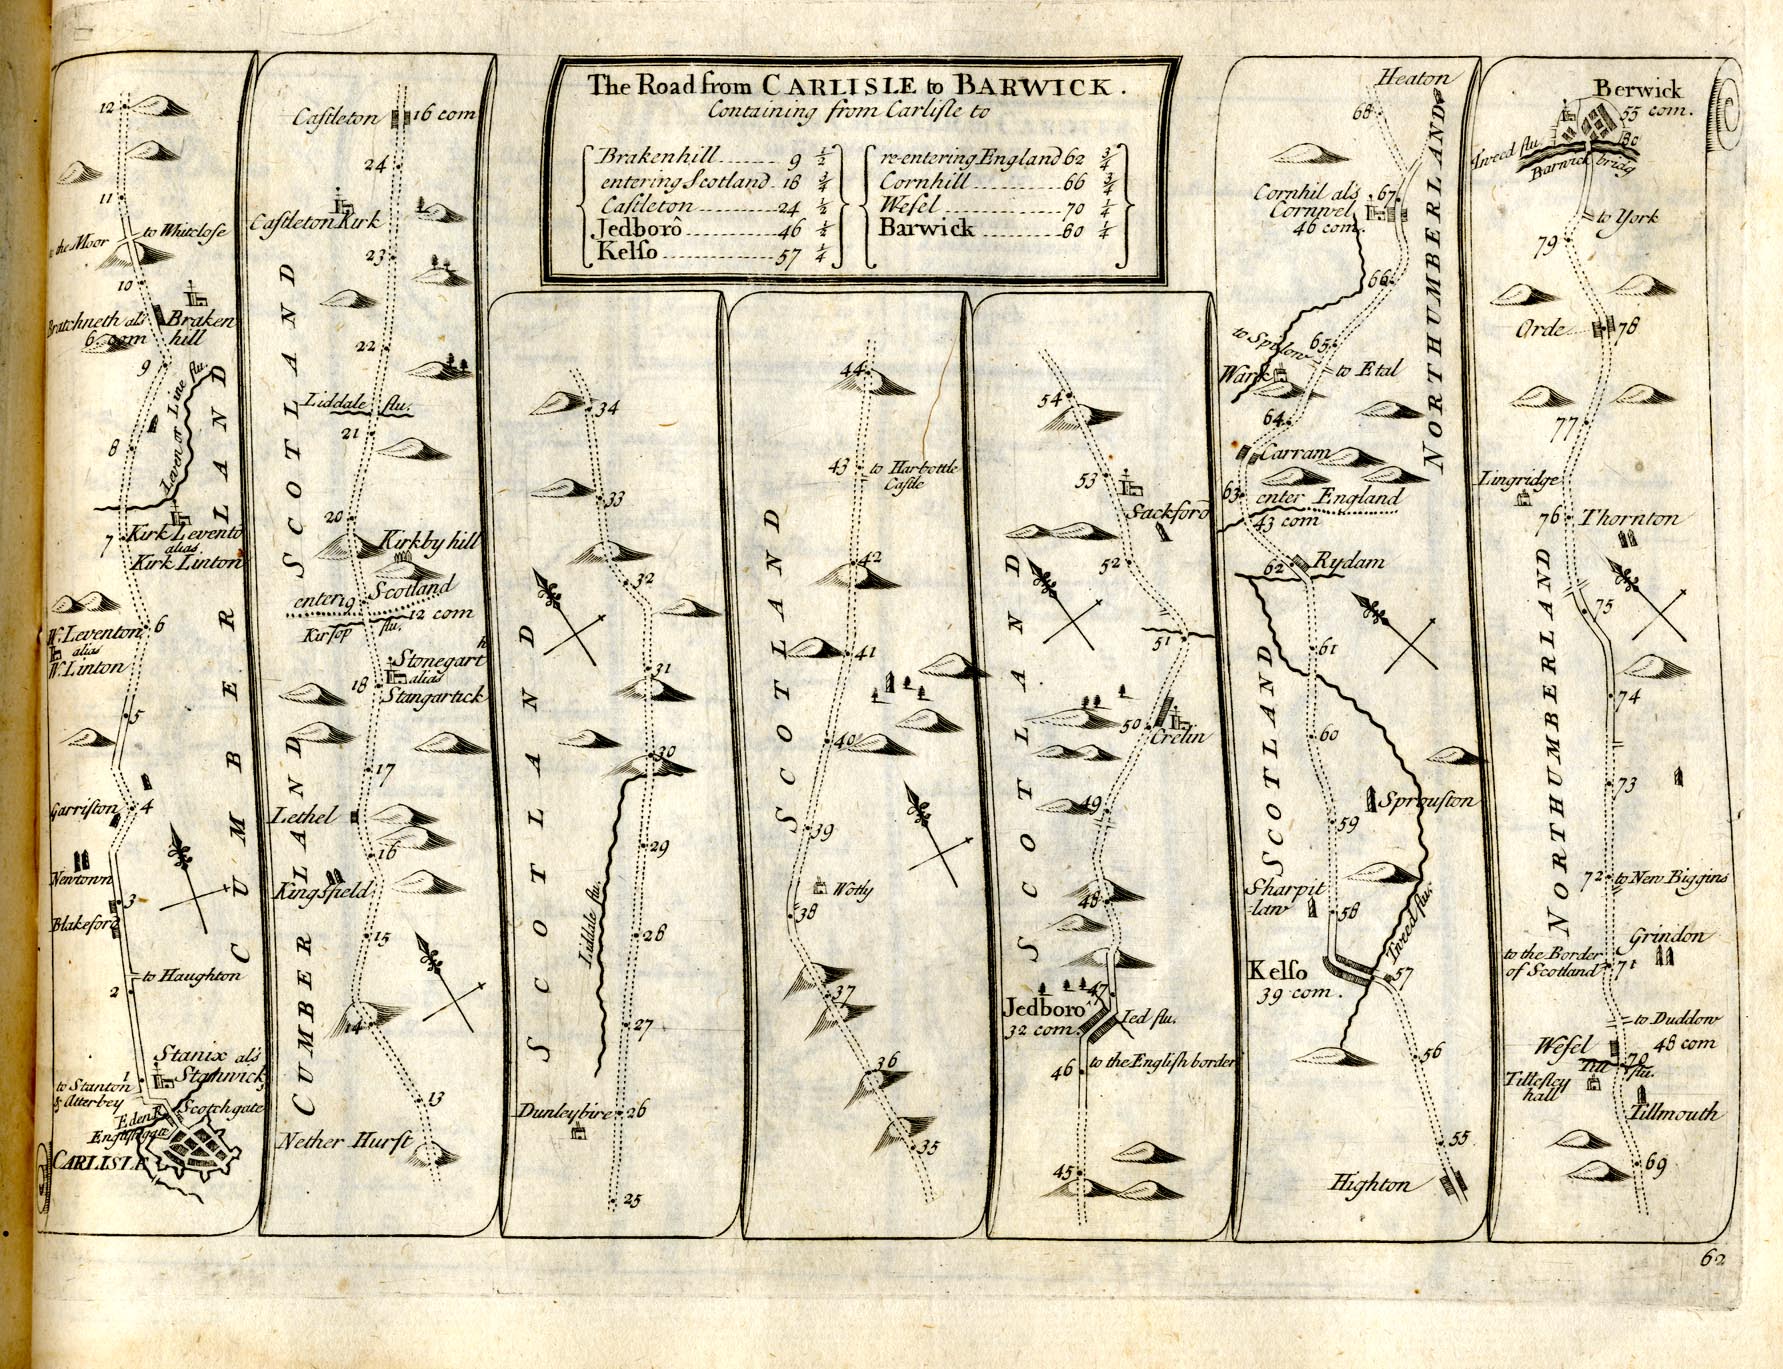 The Road from CARLISLE to BARWICK.
Containing from Carlisle to
Brakenhill 9 1/2
entering Scotland 18 3/4
Castleton 24 1/2
Jedborô 46 1/2
Kelso 57 1/4
re-entering England 62 3/4
Cornhill 66 3/4
Wesel 70 1/4
Barwick 80 1/4
12
11
the Moor
to Whitclose
10
Bratchneth als
6 com
Braken
hill
9
Leven or Line flu.
8
7
Kirk Levento
alias
Kirk Linton
6
W. Leventon
alias
W. Linton
5
Garriston
4
Newtown
3
Blakeford
to Haughton
2
Stanix als
Stanwick
1
to Stanton
& Atterbey
Scotchgate
Eden R
Englishgate
CARLISLE
CUMBERLAND
Castleton
16 com
24
Castleton Kirk
23
22
Liddale flu.
21
20
Kirkby hill
enter
19
Scotland
12 com
Kirsop flu.
Stonegart
h
alias
Stangartick
18
17
Lethel
16
Kingsfield
15
14
13
Nether Hurst
SCOTLAND
CUMBERLAND
34
33
32
31
30
29
Liddale flu.
28
27
Dunleybire
26
25
SCOTLAND
44
43
to Harbottle
Castle
42
41
40
39
Wotly
38
37
36
35
SCOTLAND
54
53
Sackford
52
51
50
Crelin
49
48
47
Jedboro
32 com.
Jed flu.
46
to the English border
45
SCOTLAND
Heaton
68
Cornhil als
Cornwel
46 com.
67
66
to Spilow
65
Wark
to Etal
64
Carram
63
enter England
43 com
62
Rydam
61
60
Sprouston
59
Sharpit
-law
58
Tweed flu.
Kelso
39 com.
57
56
55
Highton
NORTHUMBERLAND
SCOTLAND
Berwick
55 com.
Tweed flu.
Barwick bridg
to York
79
Orde
78
77
Lingridge
76
Thornton
75
74
73
72
to New Biggins
Grindon
to the Border
of Scotland
71
to Duddow
48 com
Wesel
70
Till flu.
Tillesley
hall
Tillmouth
69
NORTHUMBERLAND
62